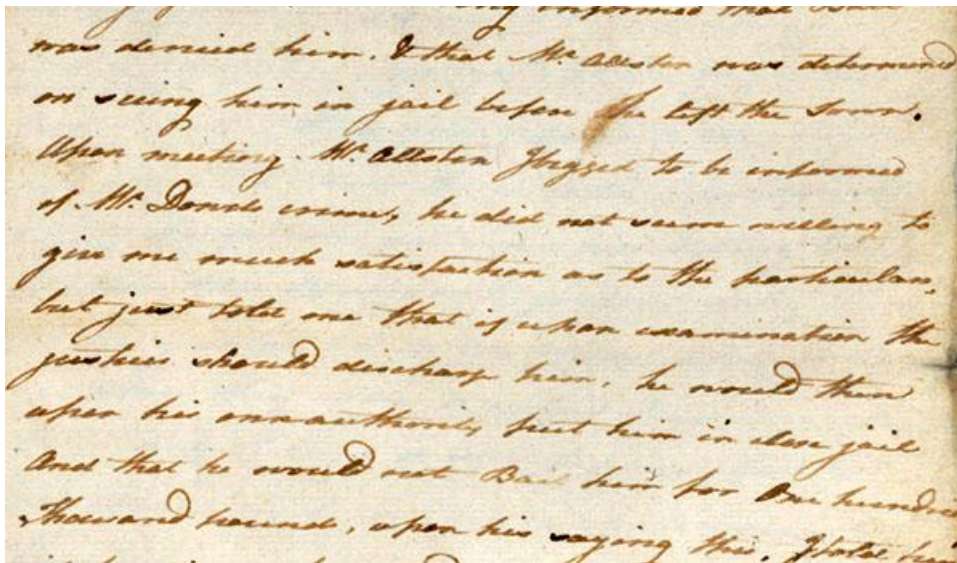 informed that Bail
was denied him. & that Mr. Allston was determined
on seeing him in jail before he left the Town.
Upon meeting Mr. Allston I begged to be informed
of Mr. Dond's crime, he did not seem willing to
give me much satisfaction as to the particulars,
but just told me that if upon examination the
justices should discharge him, he would then
upon his own authority put him in close jail
And that he would not Bail him for One hundred
Thousand pounds, upon his saying this, I told him